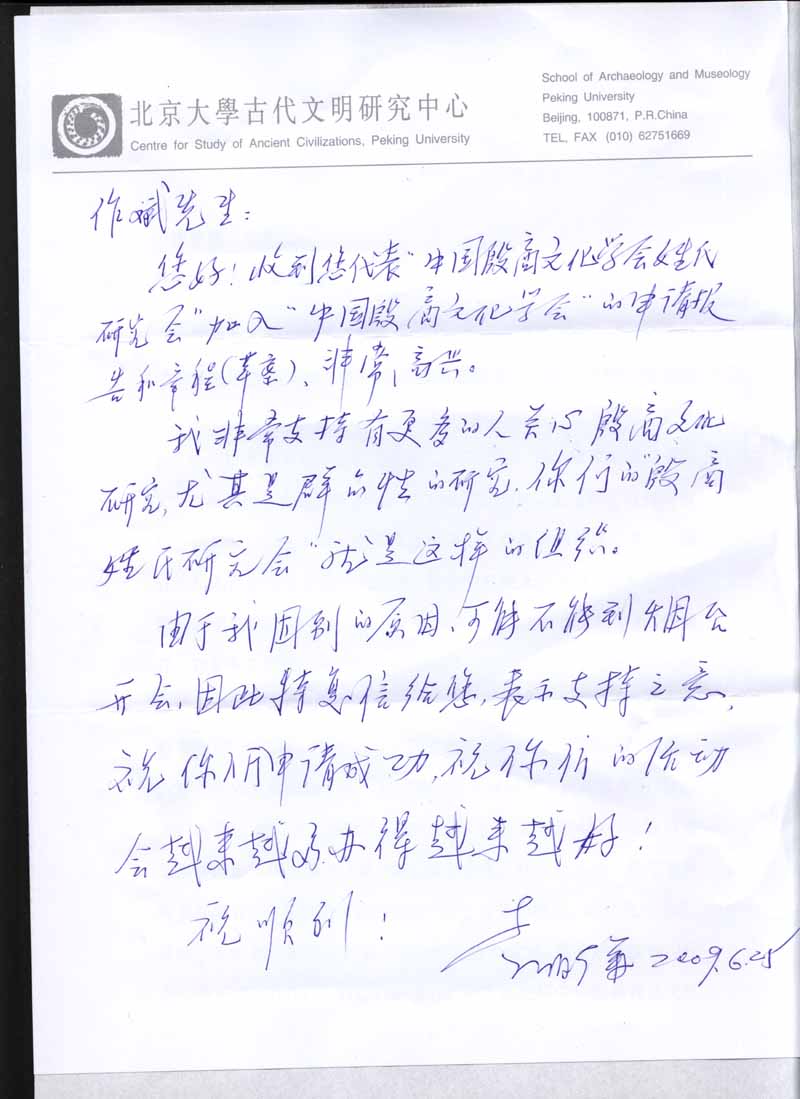 北京大學古代文明研究中心
Centre for Study of Ancient Civilizations, Peking University
School of Archaeology and Museology
Peking University
Beijing, 100871, P.R.China
TEL, FAX (010) 62751669
作斌先生：
您好！收到您代表“中国殷商文化学会姓氏
研究会”加入“中国殷商文化学会”的申请报
告和章程(草案)、非常高兴。
我非常支持有更多的人关心殷商文化
研究，尤其是群众性的研究．你们的“殷商
姓氏研究会”就是这样的组织。
由于我个别的原因、可能不能到烟台
开会，因此特复信给您，表示支持之意，
祝你们申请成功，祝你们的活动
会越来越好．办得越来越好！
祝顺利！
李伯谦 2009.6.25